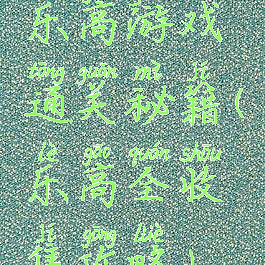 乐高游戏
tōng guān mì jí
通关秘籍(
lè gāo quán shōu
乐高全收
jí gōng lüè
集攻略)